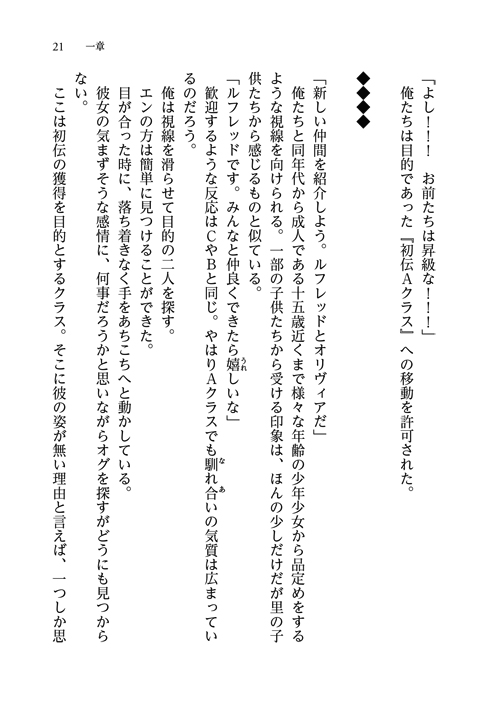 21 一章
『よし！！！ お前たちは昇級な！！！』
俺たちは目的であった『初伝Aクラス』への移動を許可された。
◆◆◆◆
「新しい仲間を紹介しよう。ルフレッドとオリヴィアだ」
俺たちと同年代から成人である十五歳近くまで様々な年齢の少年少女から品定めをする
ような視線を向けられる。一部の子供たちから受ける印象は、ほんの少しだけだが里の子
供たちから感じるものと似ている。
「ルフレッドです。みんなと仲良くできたら嬉しいな」
歓迎するような反応はCやBと同じ。やはりAクラスでも馴れ合いの気質は広まってい
るのだろう。
俺は視線を滑らせて目的の二人を探す。
エンの方は簡単に見つけることができた。
目が合った時に、落ち着きなく手をあちこちへと動かしている。
彼女の気まずそうな感情に、何事だろうかと思いながらオグを探すがどうにも見つから
ない。
ここは初伝の獲得を目的とするクラス。そこに彼の姿が無い理由と言えば、一つしか思